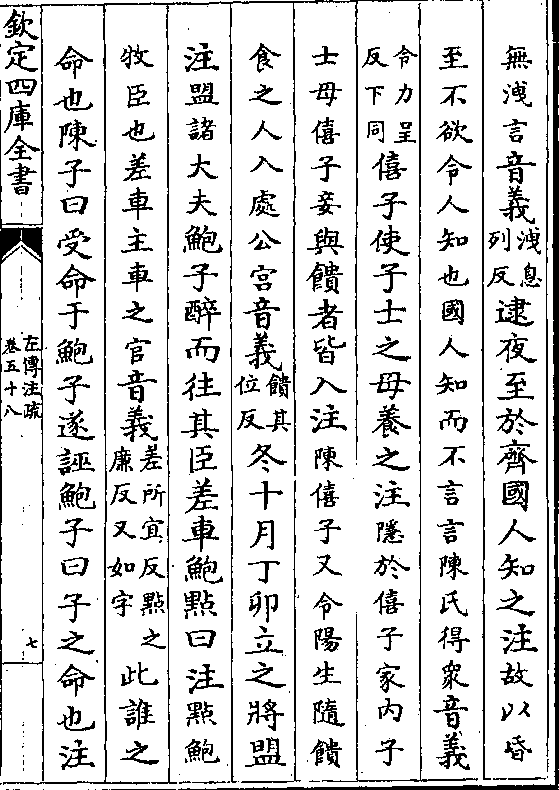 無洩言音義洩息列反逮夜至於齊國人知之注故以昏
至不欲令人知也國人知而不言言陳氏得衆音義
令力呈反下同僖子使子士之母養之注隱於僖子家内子
士母僖子妾與饋者皆入注陳僖子又令陽生隨饋
食之人入處公宫音義饋其位反冬十月丁卯立之將盟
注盟諸大夫鮑子醉而往其臣差車鮑點曰注點鮑
牧臣也差車主車之官音義差所宜反點之廉反又如字此誰之
命也陳子曰受命于鮑子遂誣鮑子曰子之命也注
欽定四庫全書
左傳注疏
卷五十八
七